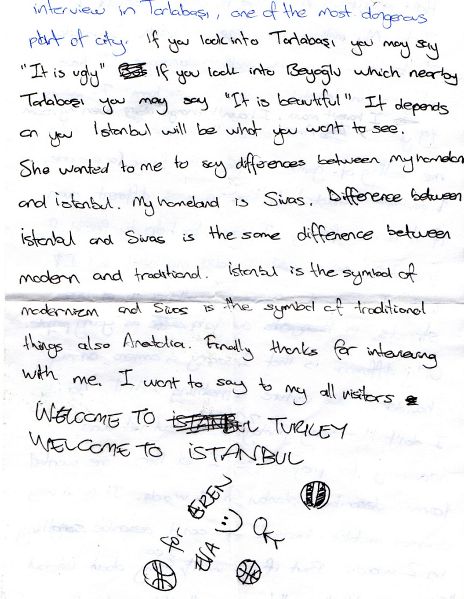 interview in Tarlabaşı, one of the most dangerous
part of city. If you look into Tarlabaşı you may say
"It is ugly" If you look into Beyoğlu which nearby
Tarlabaşı you may say "It is beautiful" It depends
on you Istanbul will be what you want to see.
She wanted to me to say differences between my homeland
and istanbul. My homeland is Sivas. Difference between
istanbul and Sivas is the same difference between
modern and traditional. istanbul is the symbol of
modernizm and Sivas is the symbol of traditional
things also Anatolia. Finally thanks for interviewing
with me. I want to say to my all visitors
WELCOME TO iSTANBUL TURKEY
WELCOME TO iSTANBUL
EREN
for
EVA